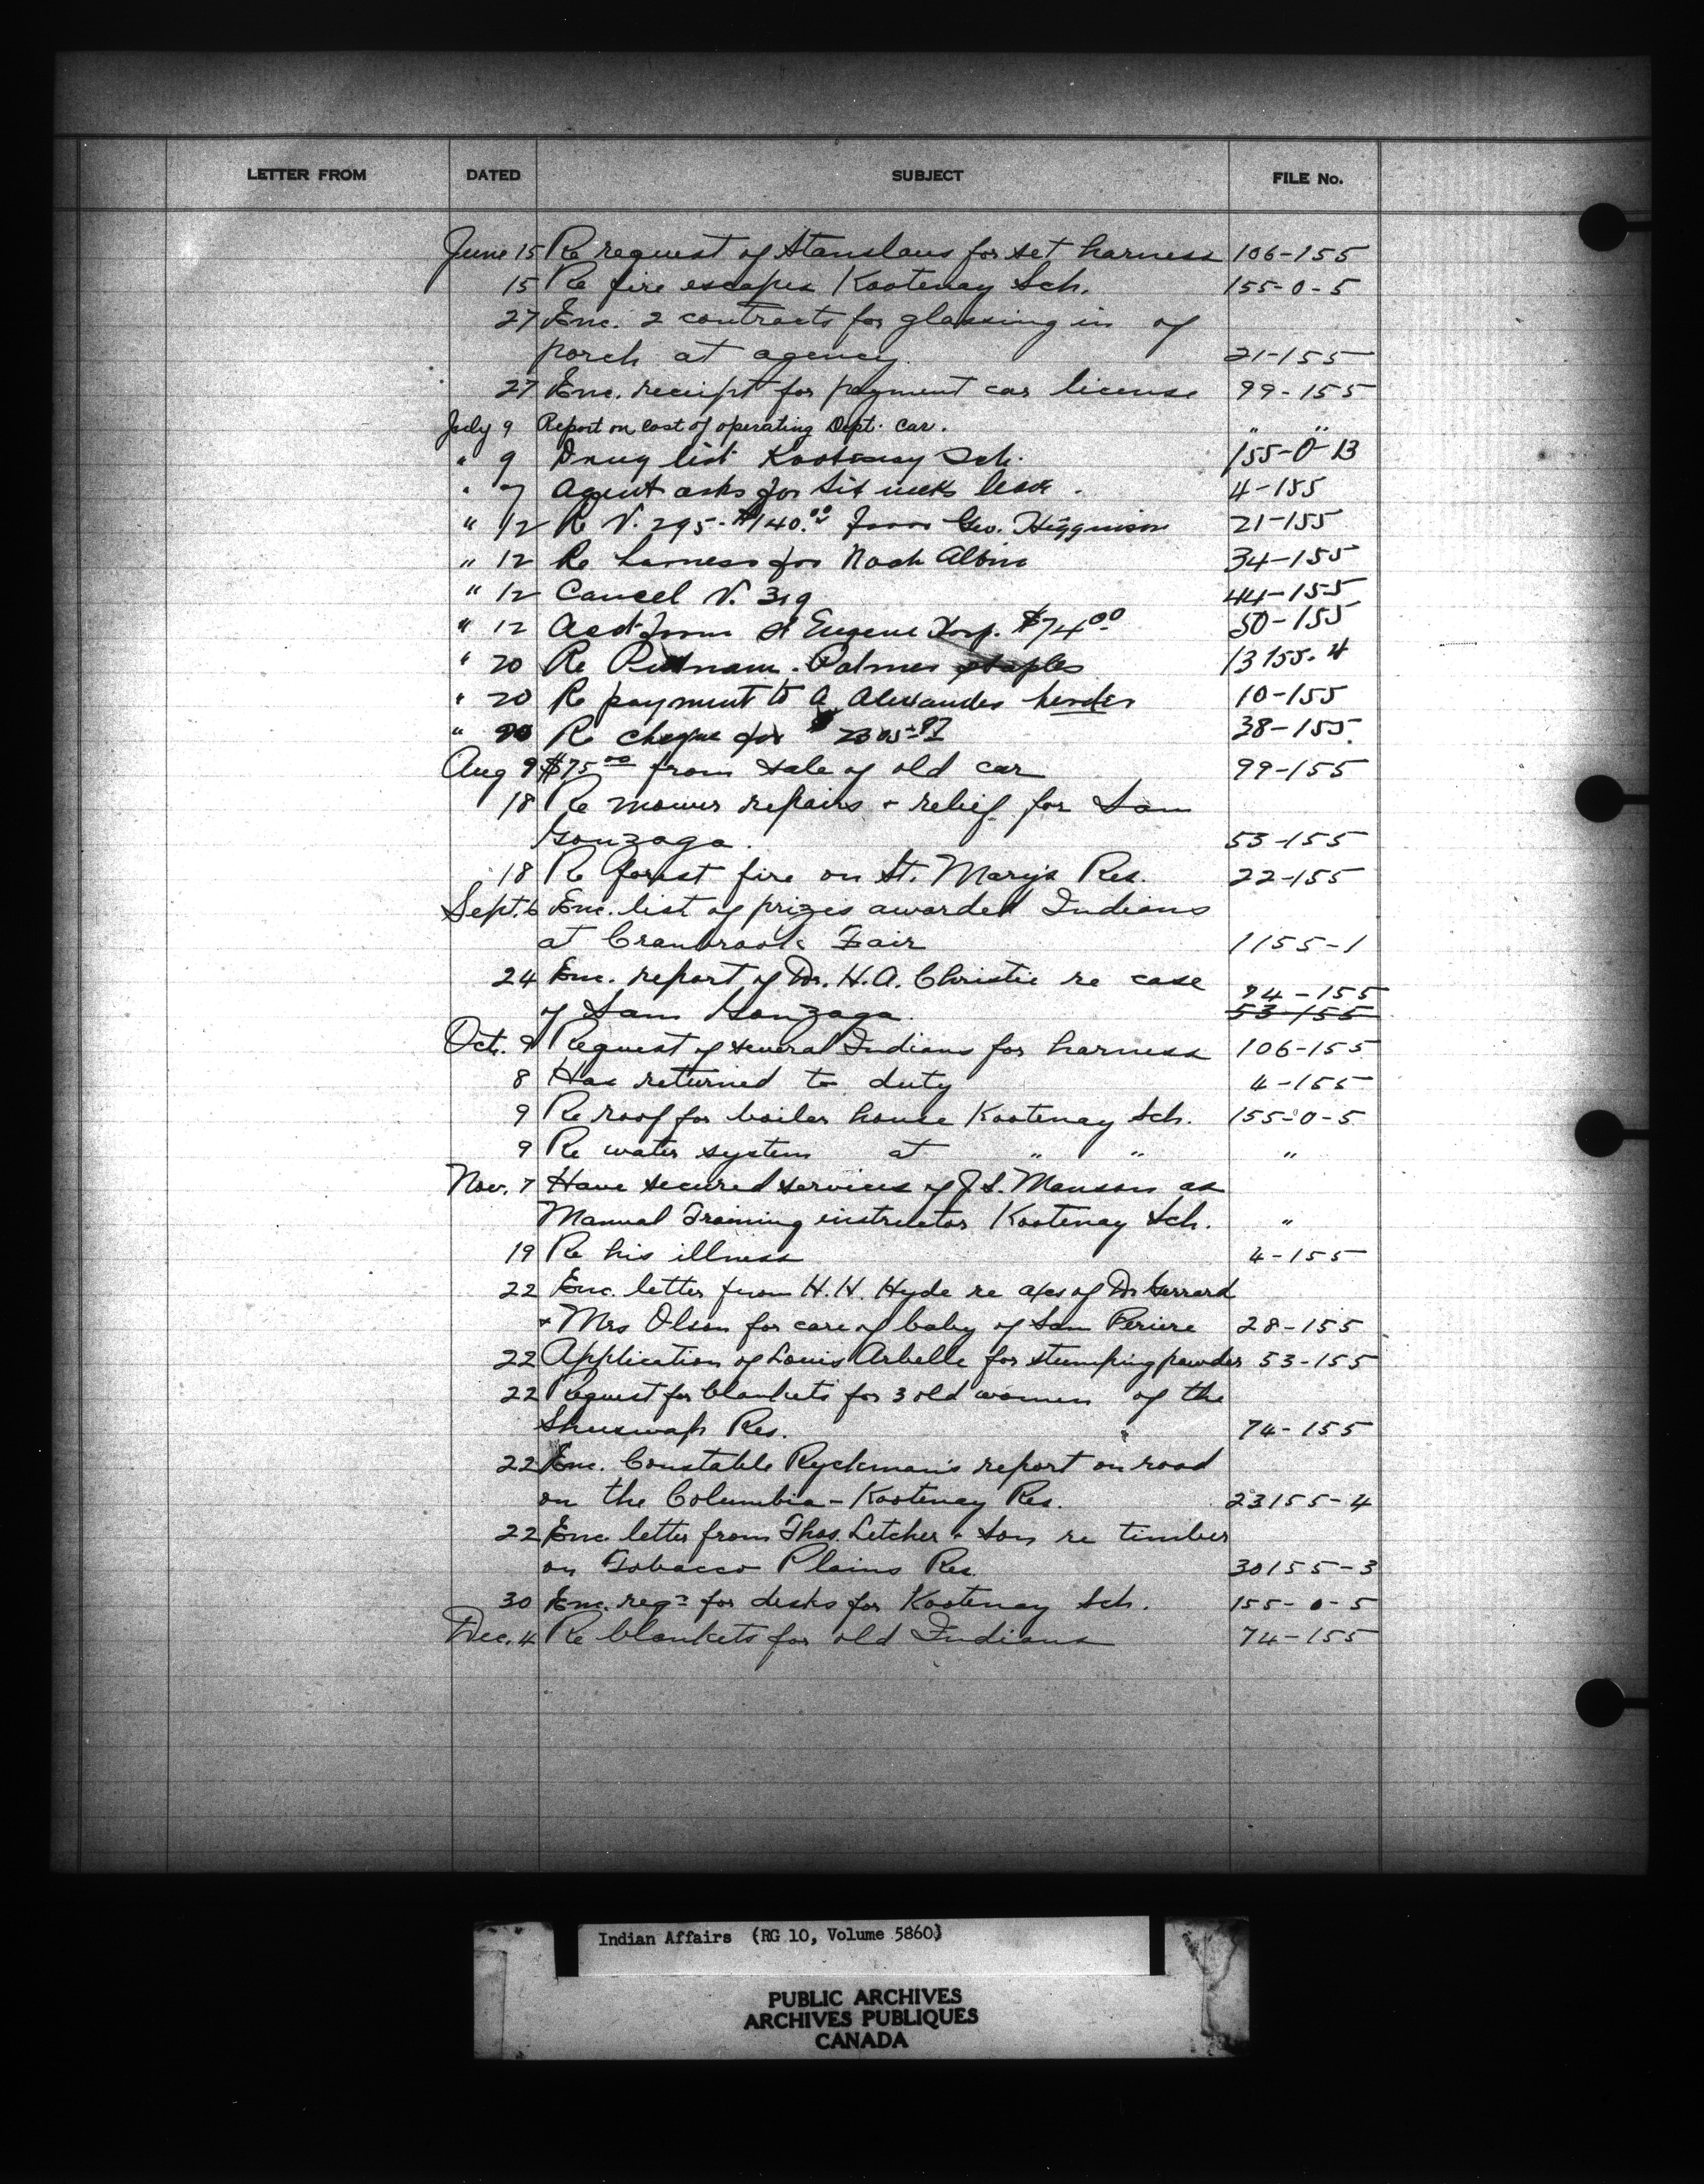 LETTER FROM DATED SUBJECT FILE No.
June 15 Re request of Stanslaus for set harness 106-155
15 Re fire escapes Kootenay Sch. 155-0-5
27 Enc. 2 contracts for glassing in of
porch at agency. 21-155
27 Enc. receipt for payment car license 99-155
July 9 Report on cost of operating Dept. car. " "
" 9 Drug list Kootenay Sch. 155-0-13
" 7 Agent asks for six weeks leave. 4-155
" 12 Re V. 295-$140.00 from Geo. Higginson 21-155
" 12 Re harness for Noah Albin 34-155
" 12 Cancel V. 319 44-155
" 12 Acct from St Eugene Hosp. $74.00 50-155
" 20 Re Putnam-Palmer staples 13155-4
" 20 Re payment to A. Alexander 10-155
" 20 Re cheque for $ 38-155
Aug 9 $75.00 from sale of old car 99-155
18 Re mower repairs + relief for Sam
Gonzaga. 53-155
18 Re forest fire on St. Mary's Res. 22-155
Sept. 6 Enc. list of prizes awarded Indians
at Cranbrook Fair 1155-1
24 Enc. report of Dr. H.A. Christie re case 94-155
of Sam Gonzaga. 53-155
Oct. 9 Request of several Indians for harness 106-155
8 Has returned to duty 4-155
9 Re roof for boiler house Kootenay Sch. 155-0-5
9 Re water system at " " "
Nov. 7 Have secured services of J.S. Manson as
Manual Training instructor Kootenay Sch. "
19 Re his illness 4-155
22 Enc. letter from H.H. Hyde re a/cs of Dr Gerrard
+ Mrs Olson for care of baby of Sam Periere 28-155
22 Application of Louis Arbelle for stumping powder 53-155
22 Request for blankets for 3 old women of the
Shuswap Res. 74-155
22 Enc. Constable Ryckman's report on road
on the Columbia-Kootenay Res. 23155-4
22 Enc letter from Thos. Letcher + Son re timber
on Tobacco Plains Res. 30155-3
30 Enc. reqn for desks for Kootenay Sch. 155-0-5
Dec. 4 Re blankets for old Indians 74-155
Indian Affairs (RG 10, Volume 5860)
PUBLIC ARCHIVES
ARCHIVES PUBLIQUES
CANADA